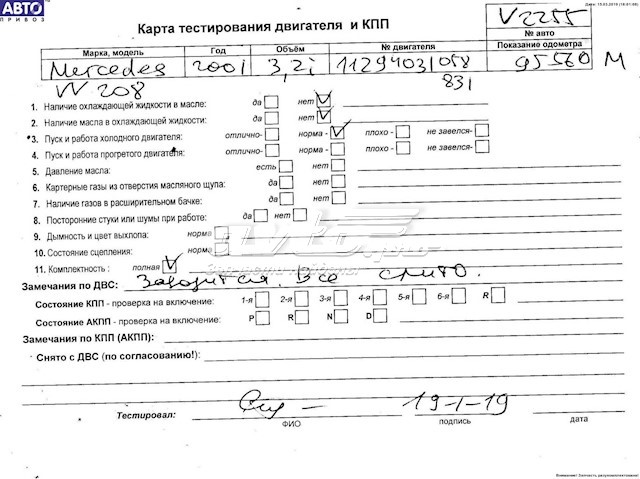 АВТО
ПРИВОЗ
Дата: 15.03.2019 (16:01:08)
Карта тестирования двигателя и КПП
V2255
№ авто
Марка, модель Год Объём № двигателя Показание одометра
Mercedes 2001 3,2i 11294031058 95560 M
W208 831
1. Наличие охлаждающей жидкости в масле: да нет
2. Наличие масла в охлаждающей жидкости: да нет
3. Пуск и работа холодного двигателя: отлично- норма - плохо - не завелся-
4. Пуск и работа прогретого двигателя: отлично- норма- плохо - не завелся-
5. Давление масла: есть нет
6. Картерные газы из отверстия масляного щупа: да нет
7. Наличие газов в расширительном бачке: да нет
8. Посторонние стуки или шумы при работе: да нет
9. Дымность и цвет выхлопа: норма
10. Состояние сцепления: норма
11. Комплектность : полная
Замечания по ДВС: Заводится. Все слито.
Состояние КПП - проверка на включение: 1-я 2-я 3-я 4-я 5-я 6-я R
Состояние АКПП - проверка на включение: P R N D
Замечания по КПП (АКПП):
Снято с ДВС (по согласованию!):
Тестировал: 19-1-19
ФИО подпись дата